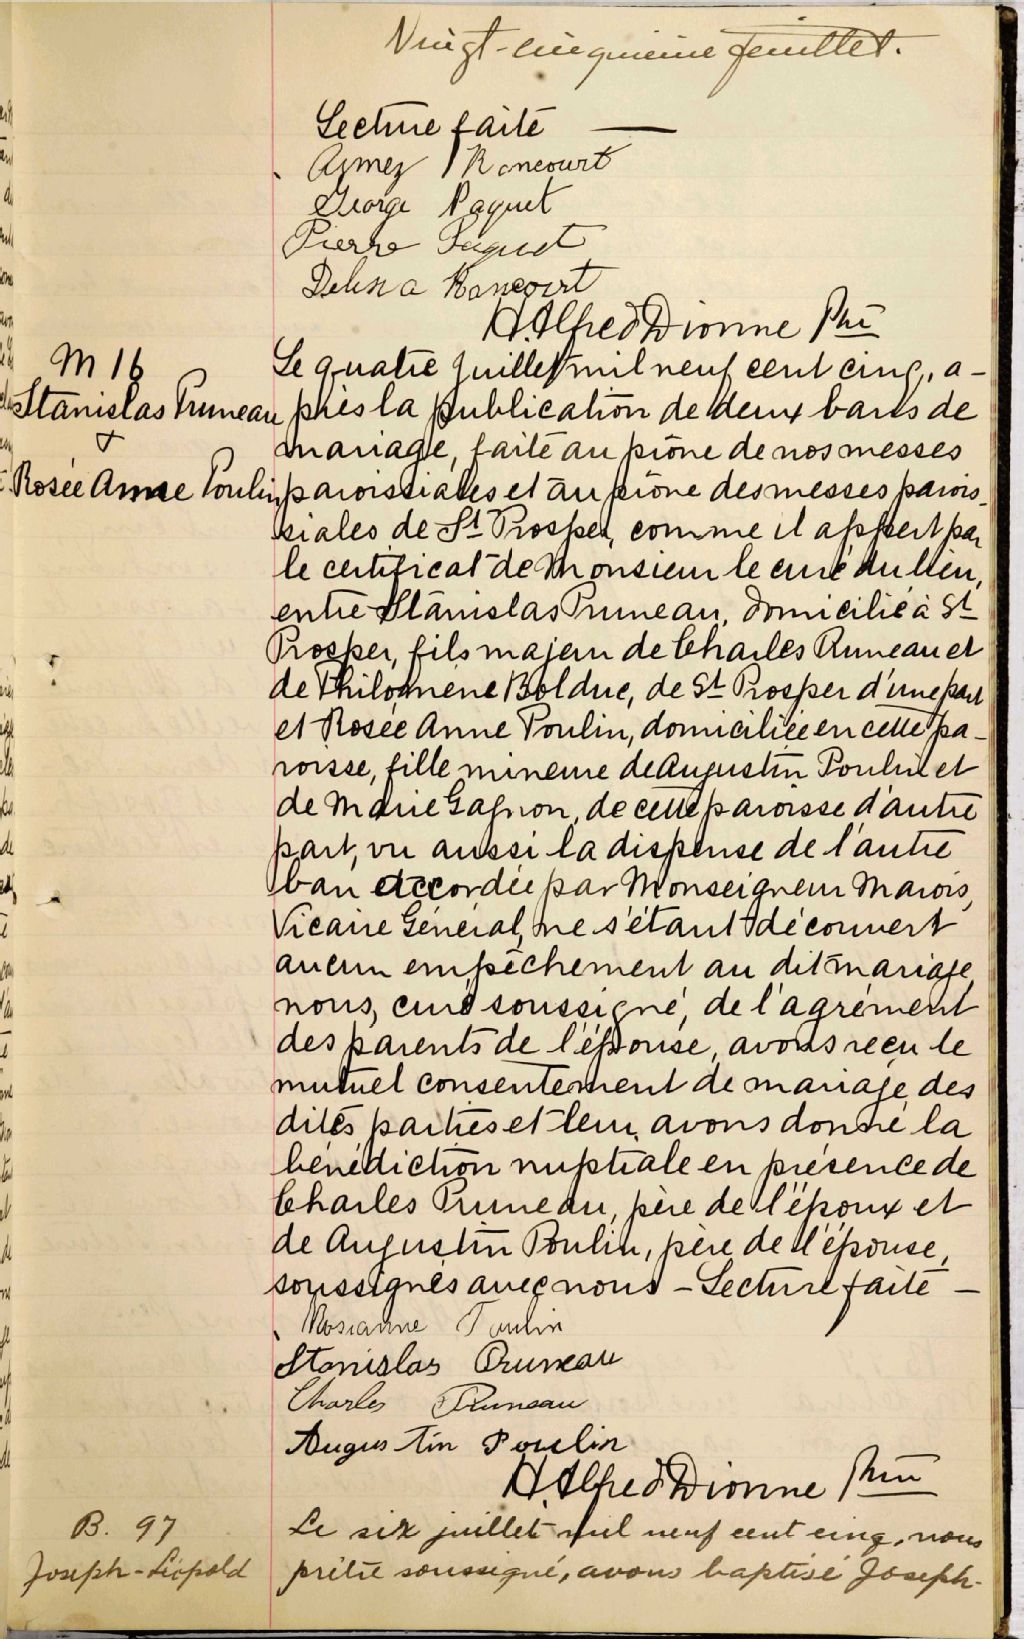 Vingt-cinquième feuillet.
Lecture faite —
Rancourt
George Paquet
Pierre Paquet
Rancourt
H. Alfred Dionne Ptre
M 16
Stanislas Pruneau
&
Rosée Anne Poulin
Le quatre juillet mil neuf cent cinq, a-
près la publication de deux bans de
mariage, faite au prône de nos messes
paroissiales et au prône des messes parois-
siales de St Prosper, comme il appert par
le certificat de Monsieur le curé du lieu,
entre Stanislas Pruneau, domicilié à St
Prosper, fils majeur de Charles Pruneau et
de Philomène Bolduc, de St Prosper d'une part
et Rosée Anne Poulin, domiciliée en cette pa-
roisse, fille mineure de Augustin Poulin et
de Marie Gagnon, de cette paroisse d'autre
part, vu aussi la dispense de l'autre
ban accordée par Monseigneur Marois,
Vicaire Général, ne s'étant découvert
aucun empêchement au dit mariage,
nous, curé soussigné, de l'agrément
des parents de l'épouse, avons reçu le
mutuel consentement de mariage des
dites parties et leur avons donné la
bénédiction nuptiale en présence de
Charles Pruneau, père de l'époux et
de Augustin Poulin, père de l'épouse,
soussignés avec nous – Lecture faite –
Rosianne Poulin
Stanislas Pruneau
Charles Pruneau
Augustin Poulin
H. Alfred Dionne Ptre
B. 97
Joseph-Léopold
Le six juillet mil neuf cent cinq, nous
prêtre soussigné, avons baptisé Joseph-